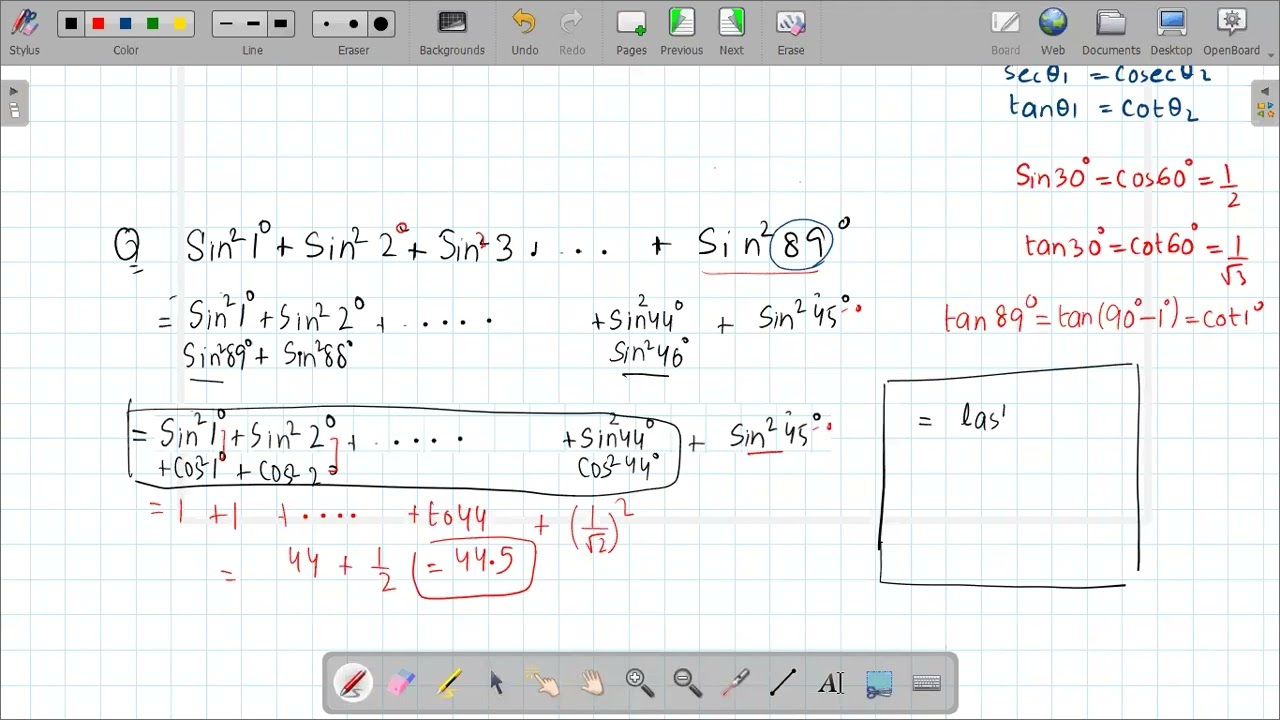 Stylus Color Line Eraser Backgrounds Undo Redo Pages Previous Next Erase Board Web Documents Desktop OpenBoard
secθ₁ = cosecθ₂
tanθ₁ = cotθ₂
Sin30° = cos60° = 1/2
Q Sin²1° + Sin²2° + Sin²3 + .... + Sin²89°
tan30° = cot60° = 1/√3
= Sin²1° + Sin²2° + ..... + Sin²44° + Sin²45°
tan89° = tan(90°-1°) = cot1°
Sin²89° + Sin²88° Sin²46°
= las
= Sin²1° + Sin²2° + ..... + Sin²44° + Sin²45°
+Cos²1° + Cos²2 Cos²44°
= 1 + 1 + .... + to 44 + (1/√2)²
= 44 + 1/2 = 44.5
AI